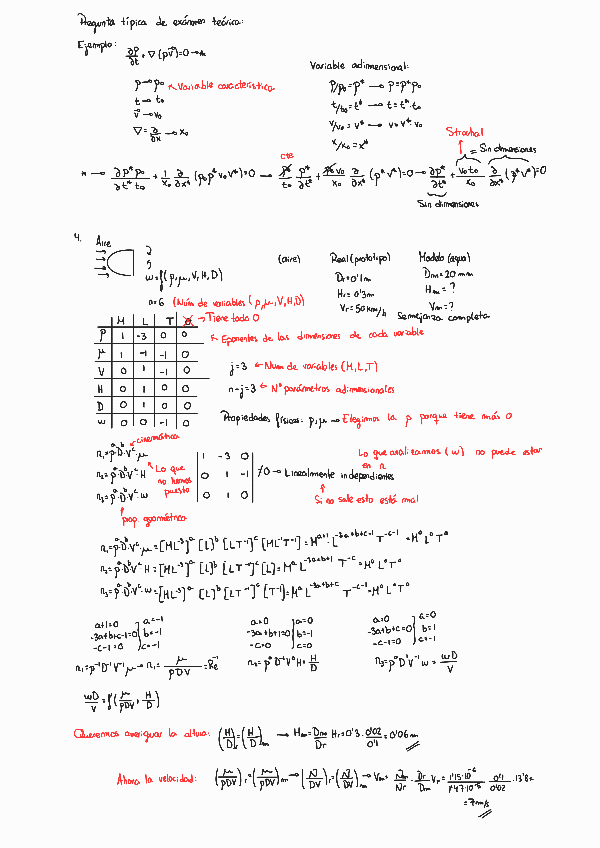 Pregunta típica de exámen teórico:
Ejemplo: ∂ρ/∂t + ∇(ρv⃗)=0 → *
Variable adimensional:
ρ → ρ₀ ↖ Variable característica
t → t₀
v⃗ → v₀
∇ = ∂/∂x → x₀
ρ/ρ₀ = ρ* → ρ = ρ*ρ₀
t/t₀ = t* → t = t*·t₀
v/v₀ = v* → v = v*·v₀
x/x₀ = x*
Strouhal
= Sin dimensiones
cte
* → ∂ρ*ρ₀/∂t*t₀ + 1/x₀ ∂/∂x* (ρ₀ρ*v₀v*)=0 → ρ₀/t₀ ρ*/∂t* + ρ₀v₀/x₀ ∂/∂x* (ρ*v*)=0 → ∂ρ*/∂t* + v₀t₀/x₀ ∂/∂x* (ρ*v*)=0
Sin dimensiones
4. Aire
w = f(ρ, μ, V, H, D)
(aire) Real (prototipo) Modelo (agua)
Dr = 0'1m Dm = 20 mm
Hr = 0'3m Hm = ?
Vr = 50 km/h Vm = ?
Semejanza completa
n=6 (Núm de variables (ρ, μ, V, H, D)
M L T θ → Tiene todo 0
ρ 1 -3 0 0
μ 1 -1 -1 0
V 0 1 -1 0
H 0 1 0 0
D 0 1 0 0
w 0 0 -1 0
↖ Eponentes de las dimensiones de cada variable
j=3 ← Num de variables (M, L, T)
n-j=3 ← Nº parámetros adimensionales
Propiedades físicas: ρ, μ → Elegimos la ρ porque tiene más 0
cinemática
π₁ = ρᵃ·Dᵇ·Vᶜ·μ
π₂ = ρᵃ·Dᵇ·Vᶜ·H
π₃ = ρᵃ·Dᵇ·Vᶜ·w
Lo que no hemos puesto
prop. geométrica
| 1 -3 0 |
| 0 1 -1 | ≠0 → Linealmente independientes
| 0 1 0 |
Si no sale esto está mal
Lo que analizamos (w) no puede estar en π
π₁ = ρᵃ·Dᵇ·Vᶜ·μ = [ML⁻³]ᵃ [L]ᵇ [LT⁻¹]ᶜ [ML⁻¹T⁻¹] = Mᵃ⁺¹ L⁻³ᵃ⁺ᵇ⁺ᶜ⁻¹ T⁻ᶜ⁻¹ = M⁰ L⁰ T⁰
π₂ = ρᵃ·Dᵇ·Vᶜ·H = [ML⁻³]ᵃ [L]ᵇ [LT⁻¹]ᶜ [L] = Mᵃ L⁻³ᵃ⁺ᵇ⁺¹ T⁻ᶜ = M⁰ L⁰ T⁰
π₃ = ρᵃ·Dᵇ·Vᶜ·w = [ML⁻³]ᵃ [L]ᵇ [LT⁻¹]ᶜ [T⁻¹] = Mᵃ L⁻³ᵃ⁺ᵇ⁺ᶜ T⁻ᶜ⁻¹ = M⁰ L⁰ T⁰
a+1=0 a=-1 a=0 a=0 a=0 a=0
-3a+b+c-1=0 b=-1 -3a+b+1=0 b=-1 -3a+b+c=0 b=1
-c-1=0 c=-1 -c=0 c=0 -c-1=0 c=-1
π₁ = ρ⁻¹D⁻¹V⁻¹μ → π₁ = μ/ρDV = Re⁻¹ π₂ = ρ⁰D⁻¹V⁰H = H/D π₃ = ρ⁰D¹V⁻¹w = wD/V
wD/V = f(μ/ρDV, H/D)
Queremos averiguar la altura: (H/D)r = (H/D)m → Hm = Dm/Dr Hr = 0'3 · 0'02/0'1 = 0'06m
Ahora la velocidad: (μ/ρDV)r = (μ/ρDV)m → (N/DV)r = (N/DV)m → Vm = Nm/Nr · Dr/Dm Vr = 1'15·10⁻⁶/1'47·10⁻⁵ · 0'1/0'02 · 13'8=
=7m/s